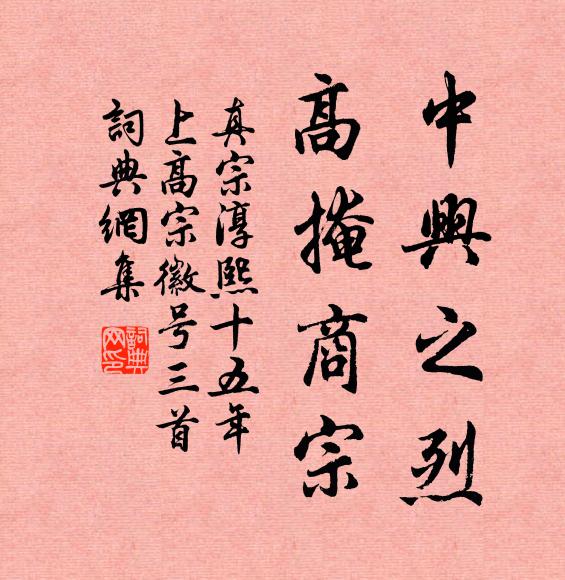 中興之烈
高掩商宗
真宗淳熙十五年
上高宗徽号三首
詞典網集
詞典網印